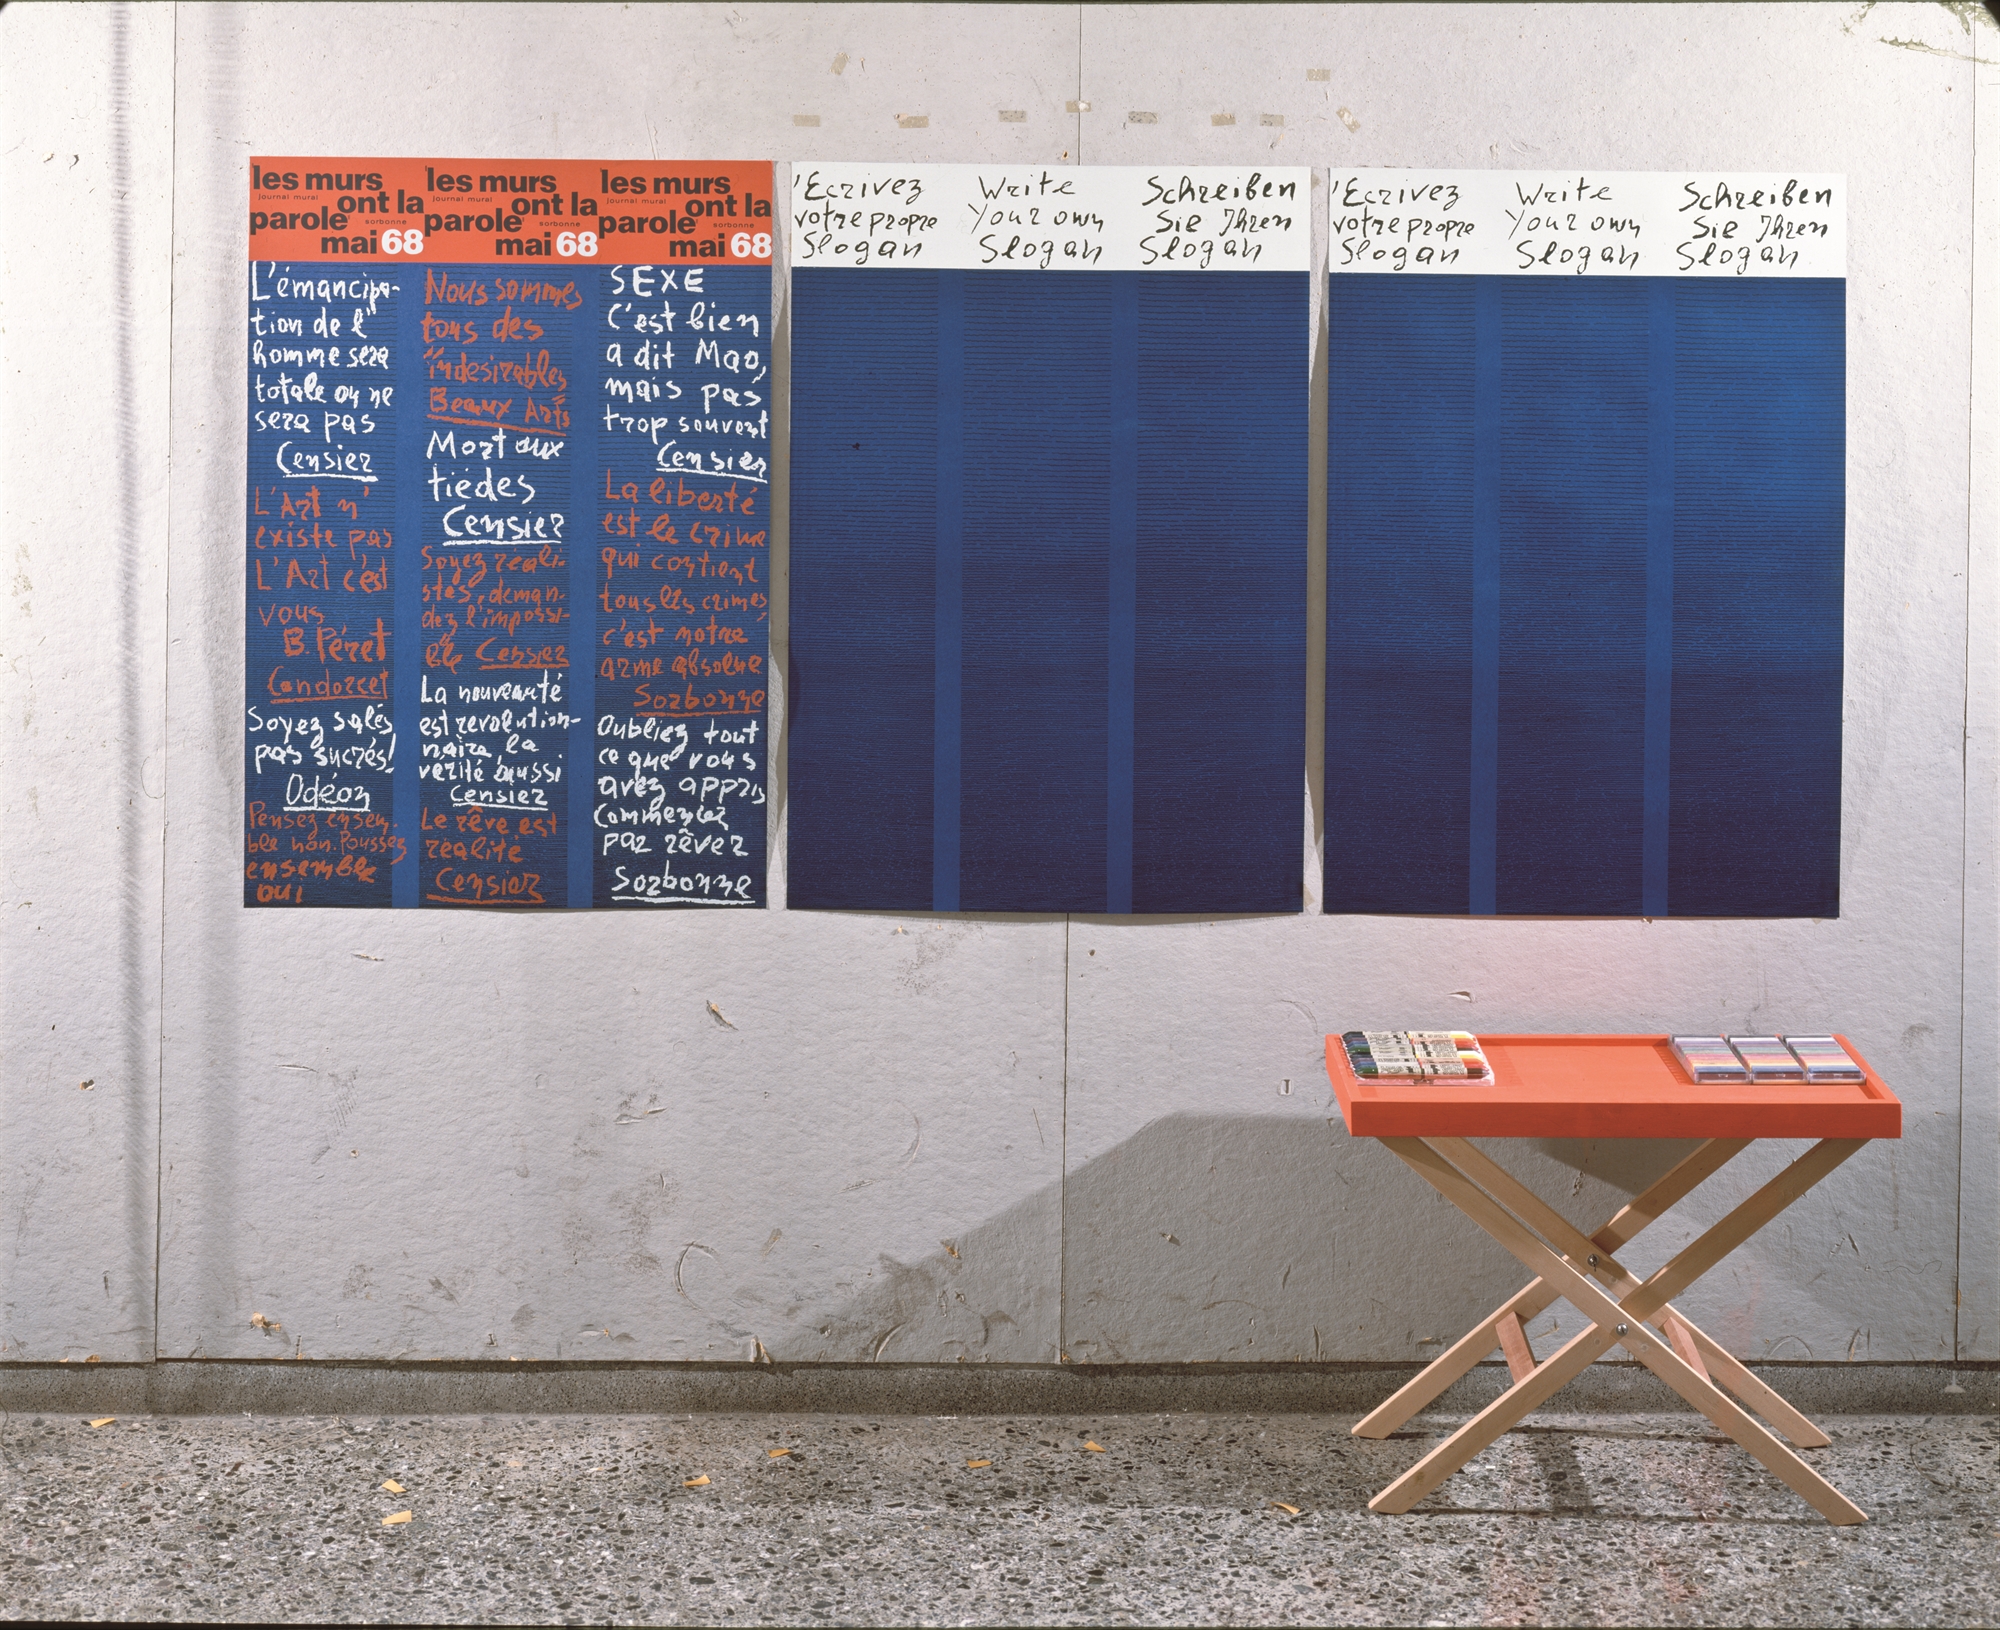 les murs
journal mural
ont la
parole
sorbonne
mai 68
L'émancipa-
tion de l'
homme sera
totale ou ne
sera pas
Censier
L'Art n'
existe pas
L'Art c'est
vous
B. Péret
Condorcet
Soyez salés
pas sucrés!
Odéon
Pensez ensem-
ble non. Poussez
ensemble
oui
les murs
journal mural
ont la
parole
sorbonne
mai 68
Nous sommes
tous des
"indesirables
Beaux Arts
Mort aux
tièdes
Censier
Soyez reali-
stes, deman-
dez l'impossi-
ble Censier
La nouveauté
est revolution-
naire, la
vérité aussi
Censier
Le rêve est
réalité
Censier
les murs
ont la
parole
sorbonne
mai 68
SEXE
C'est bien
a dit Mao,
mais pas
trop souvent
Censier
La liberté
est le crime
qui contient
tous les crimes
c'est notre
arme absolue
Sorbonne
Oubliez tout
ce que vous
avez appris
Commencez
par rêver
Sorbonne
'Ecrivez
votre propre
Slogan
Write
your own
Slogan
Schreiben
Sie Ihren
Slogan
'Ecrivez
votre propre
Slogan
Write
your own
Slogan
Schreiben
Sie Ihren
Slogan